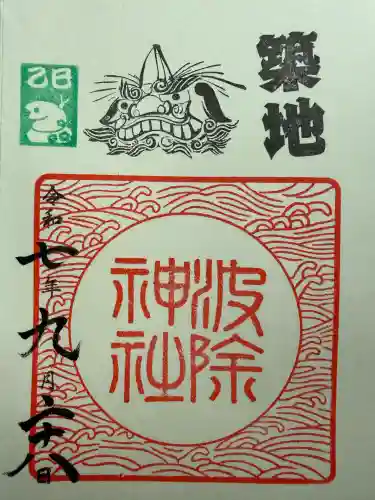 築地
乙巳
波除
神社
令和七年九月二十八日